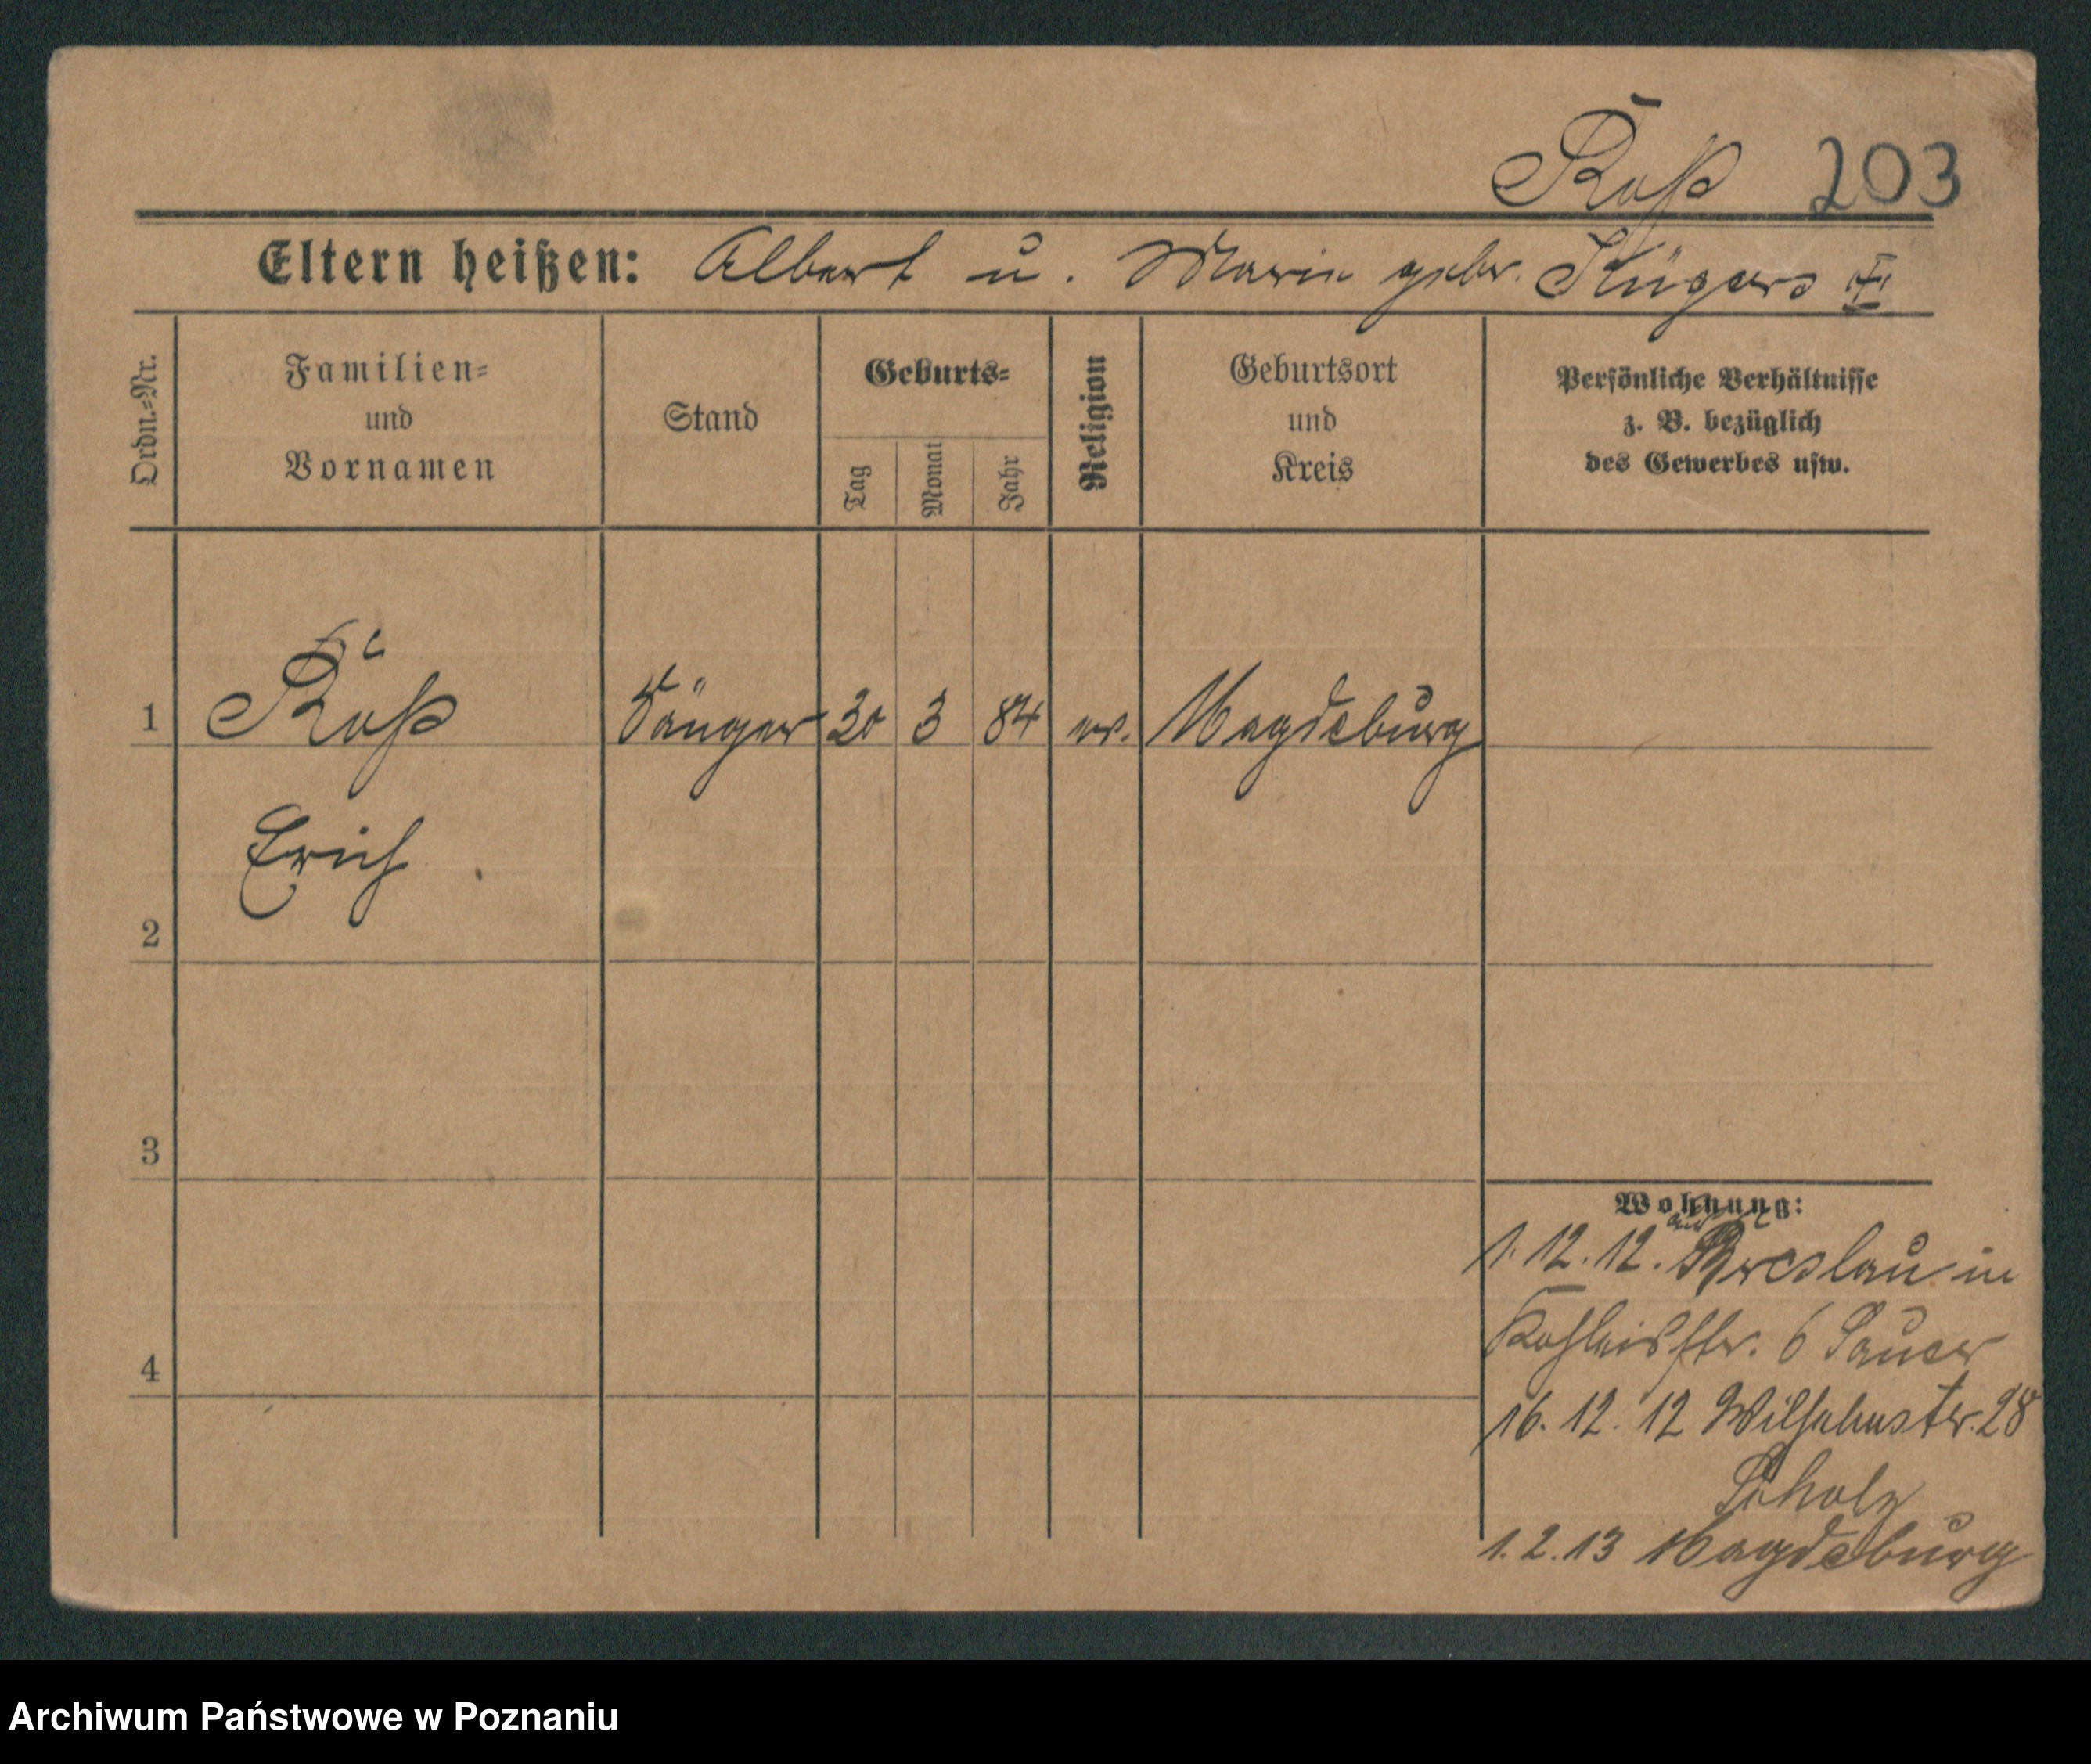 Roß 203
Eltern heißen: Albert u. Marie gebr.
Ordn.-Nr.
Familien-
und
Vornamen
Stand
Geburts-
Tag
Monat
Jahr
Religion
Geburtsort
und
Kreis
Persönliche Verhältnisse
z. B. bezüglich
des Gewerbes usw.
1 Roß Sänger 20 3 84 ev. Magdeburg
Erich
2
3
4
Wohnung:
aus
1.12.12. Breslau in
6
16.12.12 Wilhelmstr. 28
Scholz
1.2.13 Magdeburg
Archiwum Państwowe w Poznaniu